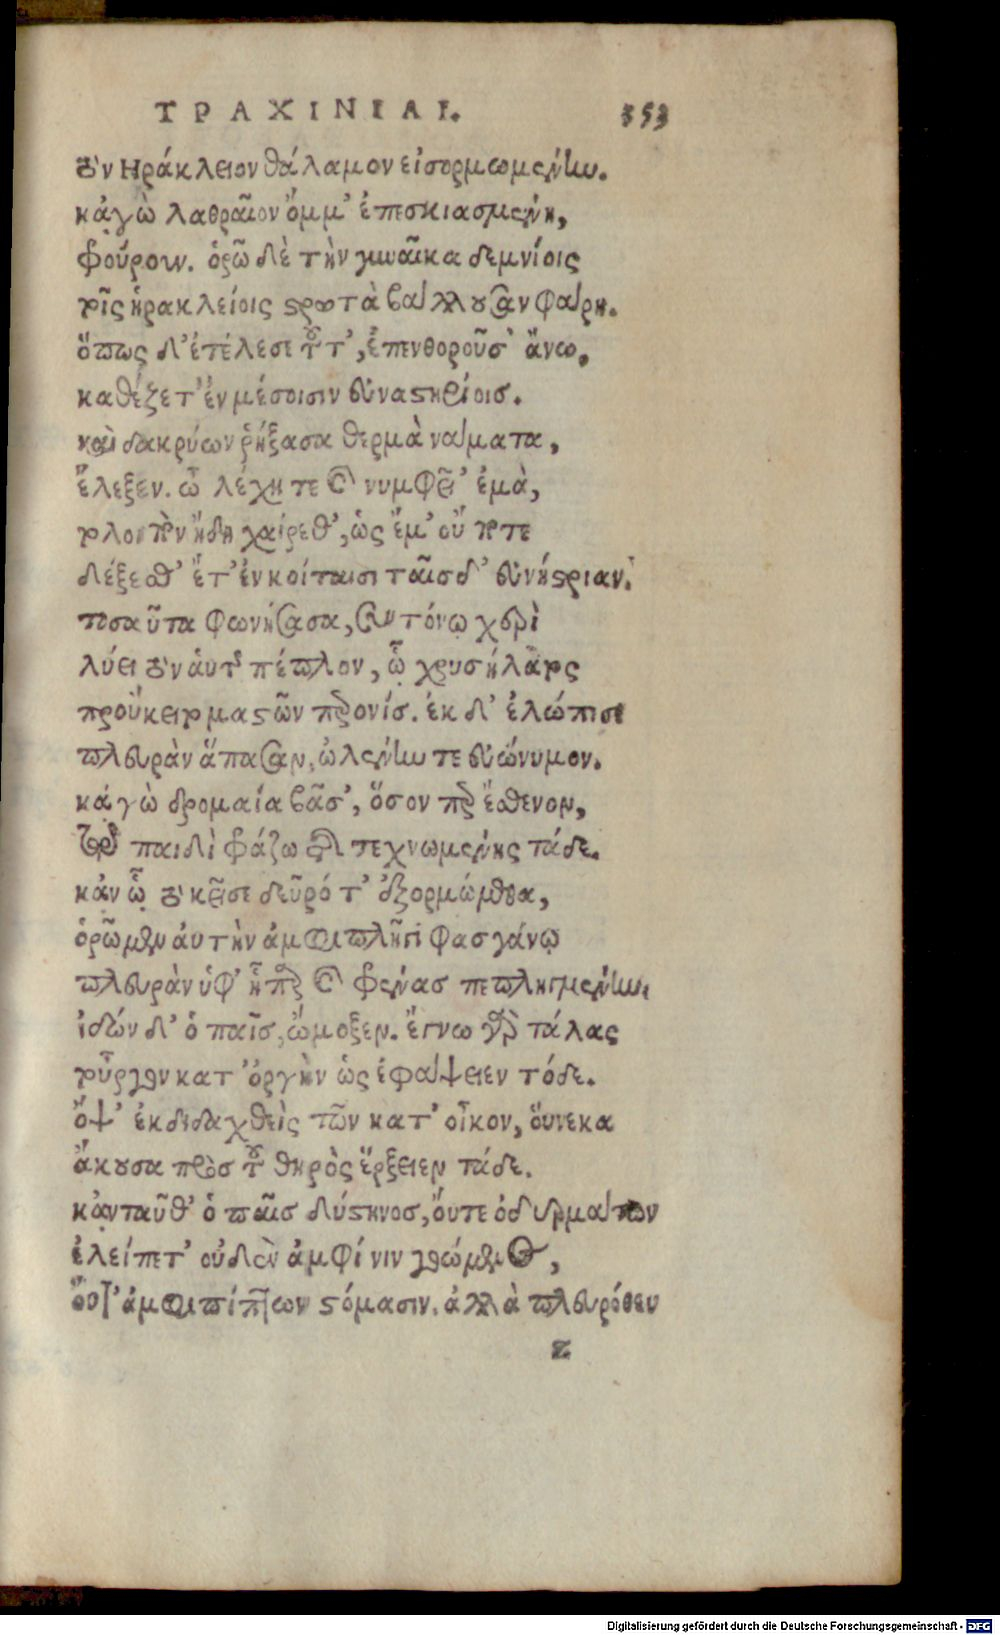 ΤΡΑΧΙΝΙΑΙ. 353
τὸν Ηράκλειον θάλαμον εἰσορμωμένην.
κἀγὼ λαθραῖον ὄμμ' ἐπεσκιασμένη,
φρούρουν. ὁρῶ δὲ τὴν γυναῖκα δεμνίοις
τοῖς ἡρακλείοις στρωτὰ βάλλουσαν φάρη.
ὅπως δ' ἐτέλεσε τοῦτ', ἐπενθοροῦσ' ἄνω,
καθέζετ' ἐν μέσοισιν εὐναστηρίοις.
καὶ δακρύων ῥήξασα θερμὰ νάματα,
ἔλεξεν. ὦ λέχη τε καὶ νυμφεῖ' ἐμὰ,
τολοιπὸν ἤδη χαίρεθ', ὡς ἔμ' οὔ ποτε
δέξεσθ' ἔτ' ἐν κοίταισι ταῖσδ' εὐνήτριαν.
τοσαῦτα φωνήσασα, συντόνῳ χερὶ
λύει τὸν αὑτῆς πέπλον, ᾧ χρυσήλατος
προὔκειτο μαστῶν περονίς. ἐκ δ' ἐλώπισε
πλευρὰν ἅπασαν, ὠλένην τε εὐώνυμον.
κἀγὼ δρομαία βᾶσ', ὅσον περ ἔσθενον,
τῷ παιδὶ φράζω τῆς τεχνωμένης τάδε.
κἀν ᾧ τὸ κεῖσε δεῦρό τ' ἐξορμώμεθα,
ὁρῶμεν αὐτὴν ἀμφιπλῆγι φασγάνῳ
πλευρὰν ὑφ' ἧπαρ καὶ φρένας πεπληγμένην.
ἰδὼν δ' ὁ παῖς, ᾤμωξεν. ἔγνω γὰρ τάλας
τοὖργον κατ' ὀργὴν ὡς ἐφάψειεν τόδε.
ὄψ' ἐκδιδαχθεὶς τῶν κατ' οἶκον, ὅυνεκα
ἄκουσα πρὸς τοῦ θηρὸς ἔρξειεν τάδε.
κἀνταῦθ' ὁ παῖς δύστηνος, οὔτε ὀδυρμάτων
ἐλείπετ' οὐδὲν ἀμφί νιν γοώμενος,
οὔτ' ἀμφιπίπτων στόμασιν. ἀλλὰ πλευρόθεν
Z
Digitalisierung gefördert durch die Deutsche Forschungsgemeinschaft - DFG